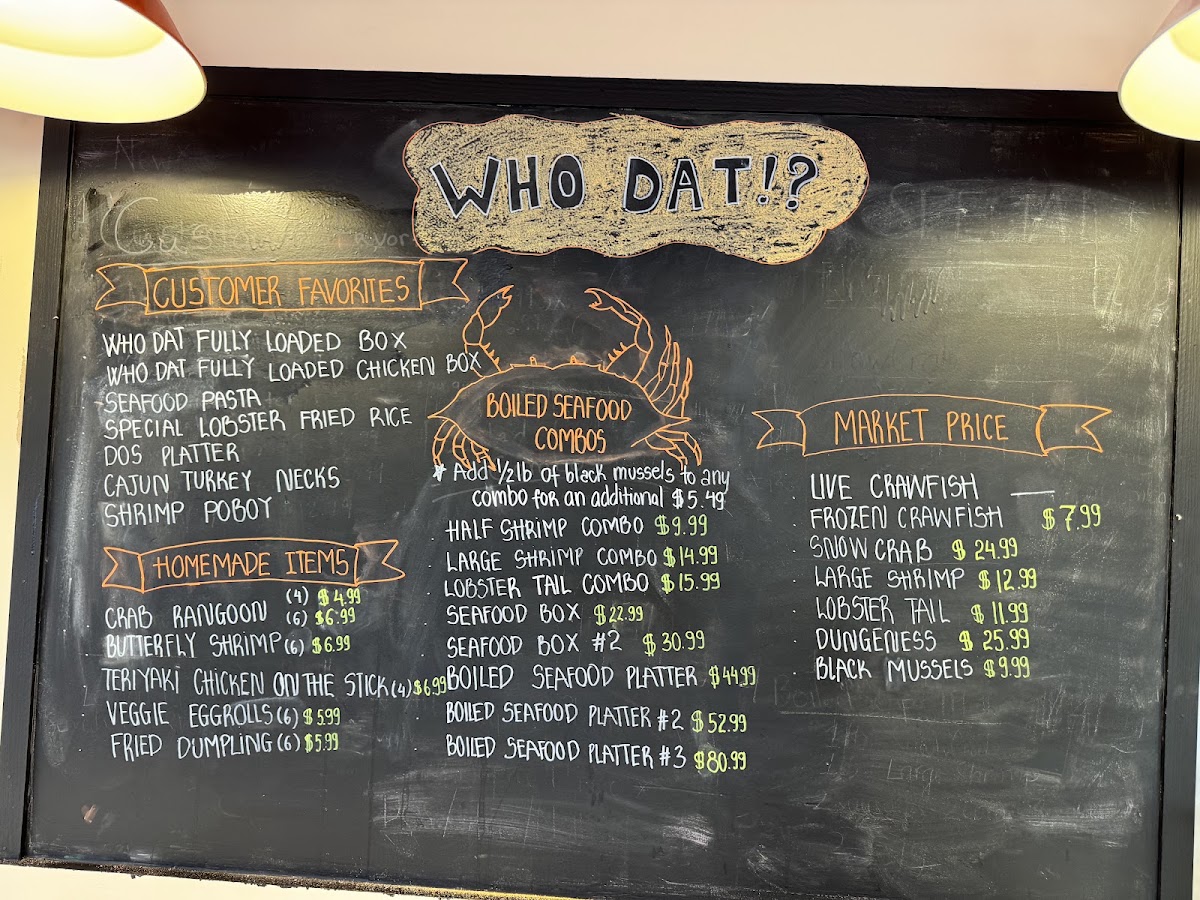 WHO DAT!?
CUSTOMER FAVORITES
WHO DAT FULLY LOADED BOX
WHO DAT FULLY LOADED CHICKEN BOX
SEAFOOD PASTA
SPECIAL LOBSTER FRIED RICE
DOS PLATTER
CAJUN TURKEY NECKS
SHRIMP POBOY
HOMEMADE ITEMS
CRAB RANGOON (4) $4.99
(6) $6.99
BUTTERFLY SHRIMP (6) $6.99
TERIYAKI CHICKEN ON THE STICK (4) $6.99
VEGGIE EGGROLLS (6) $5.99
FRIED DUMPLING (6) $5.99
BOILED SEAFOOD
COMBOS
* Add 1/2 lb of black mussels to any
combo for an additional $5.49
HALF SHRIMP COMBO $9.99
LARGE SHRIMP COMBO $14.99
LOBSTER TAIL COMBO $15.99
SEAFOOD BOX $22.99
SEAFOOD BOX #2 $30.99
BOILED SEAFOOD PLATTER $44.99
BOILED SEAFOOD PLATTER #2 $52.99
BOILED SEAFOOD PLATTER #3 $80.99
MARKET PRICE
LIVE CRAWFISH —
FROZEN CRAWFISH $7.99
SNOW CRAB $24.99
LARGE SHRIMP $12.99
LOBSTER TAIL $11.99
DUNGENESS $25.99
BLACK MUSSELS $9.99